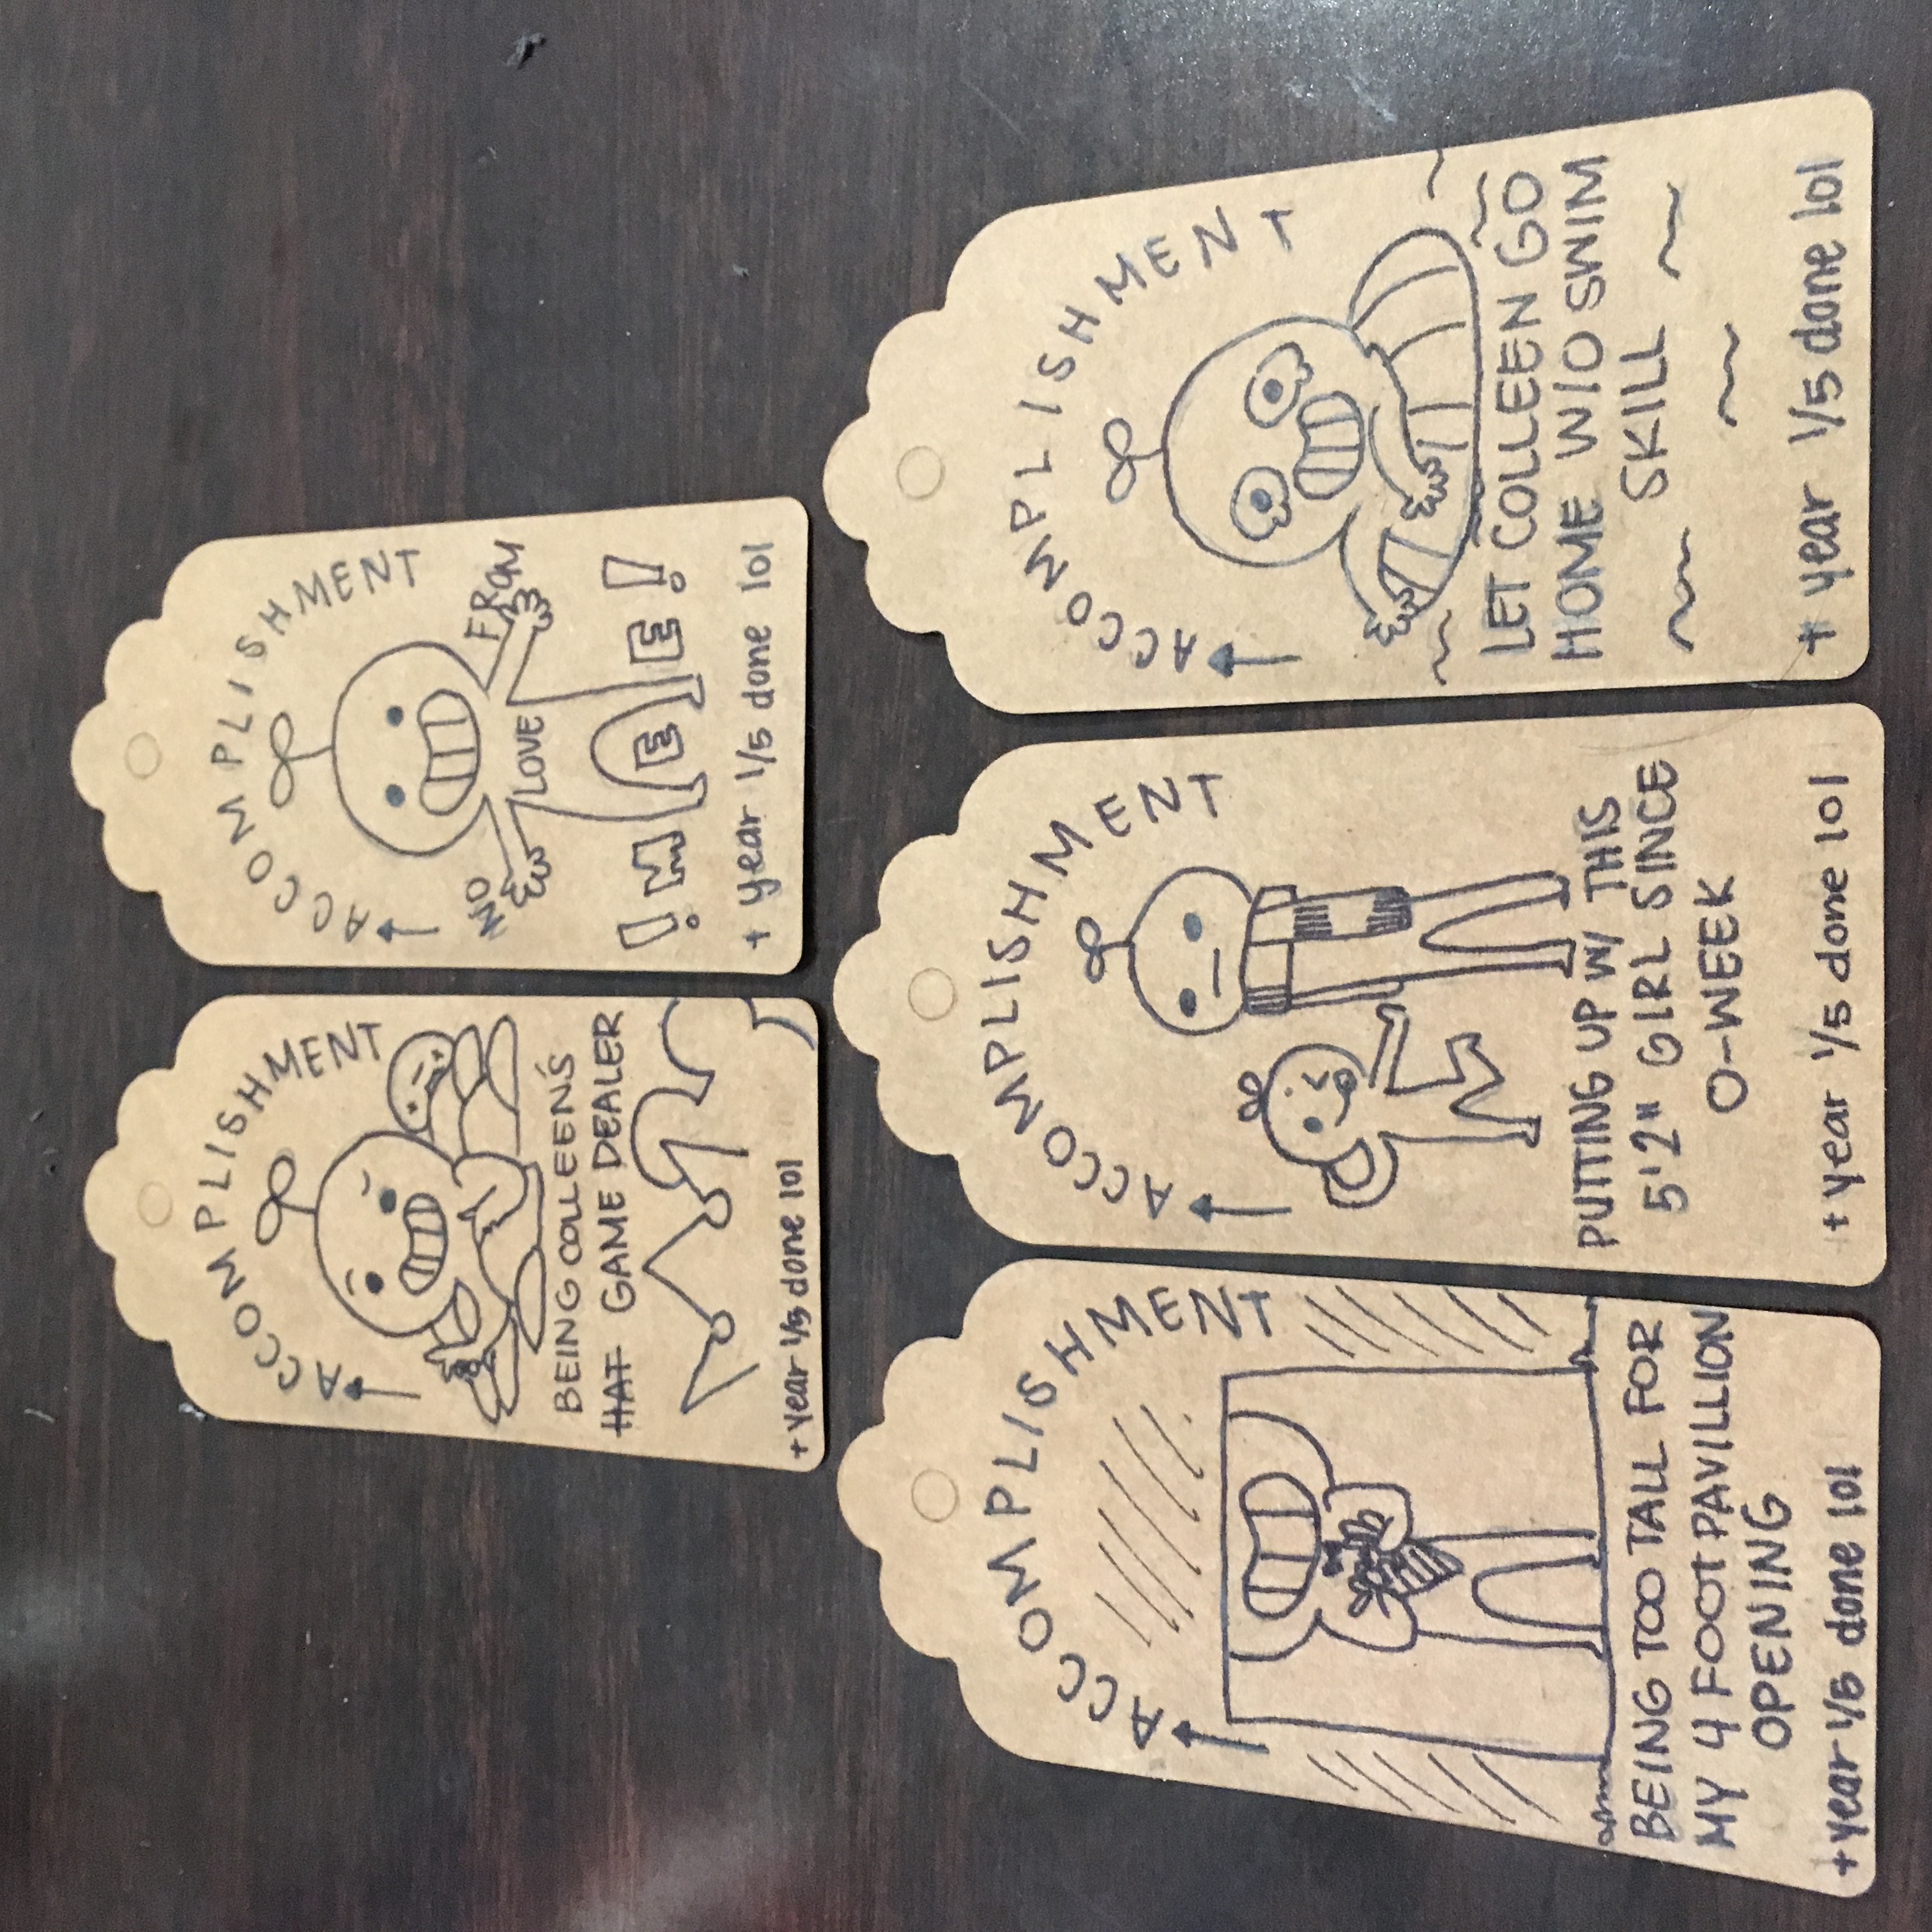 ACCOMPLISHMENT
BEING COLLEEN'S
HAT GAME DEALER
+ year 1/5 done lol
ACCOMPLISHMENT
NO
LOVE
FROM
! M E E !
+ year 1/5 done lol
ACCOMPLISHMENT
BEING TOO TALL FOR
MY 4 FOOT PAVILLION
OPENING
+ year 1/5 done lol
ACCOMPLISHMENT
PUTTING UP W/ THIS
5'2" GIRL SINCE
O-WEEK
+ year 1/5 done lol
ACCOMPLISHMENT
LET COLLEEN GO
HOME W/O SWIM
SKILL
+ year 1/5 done lol